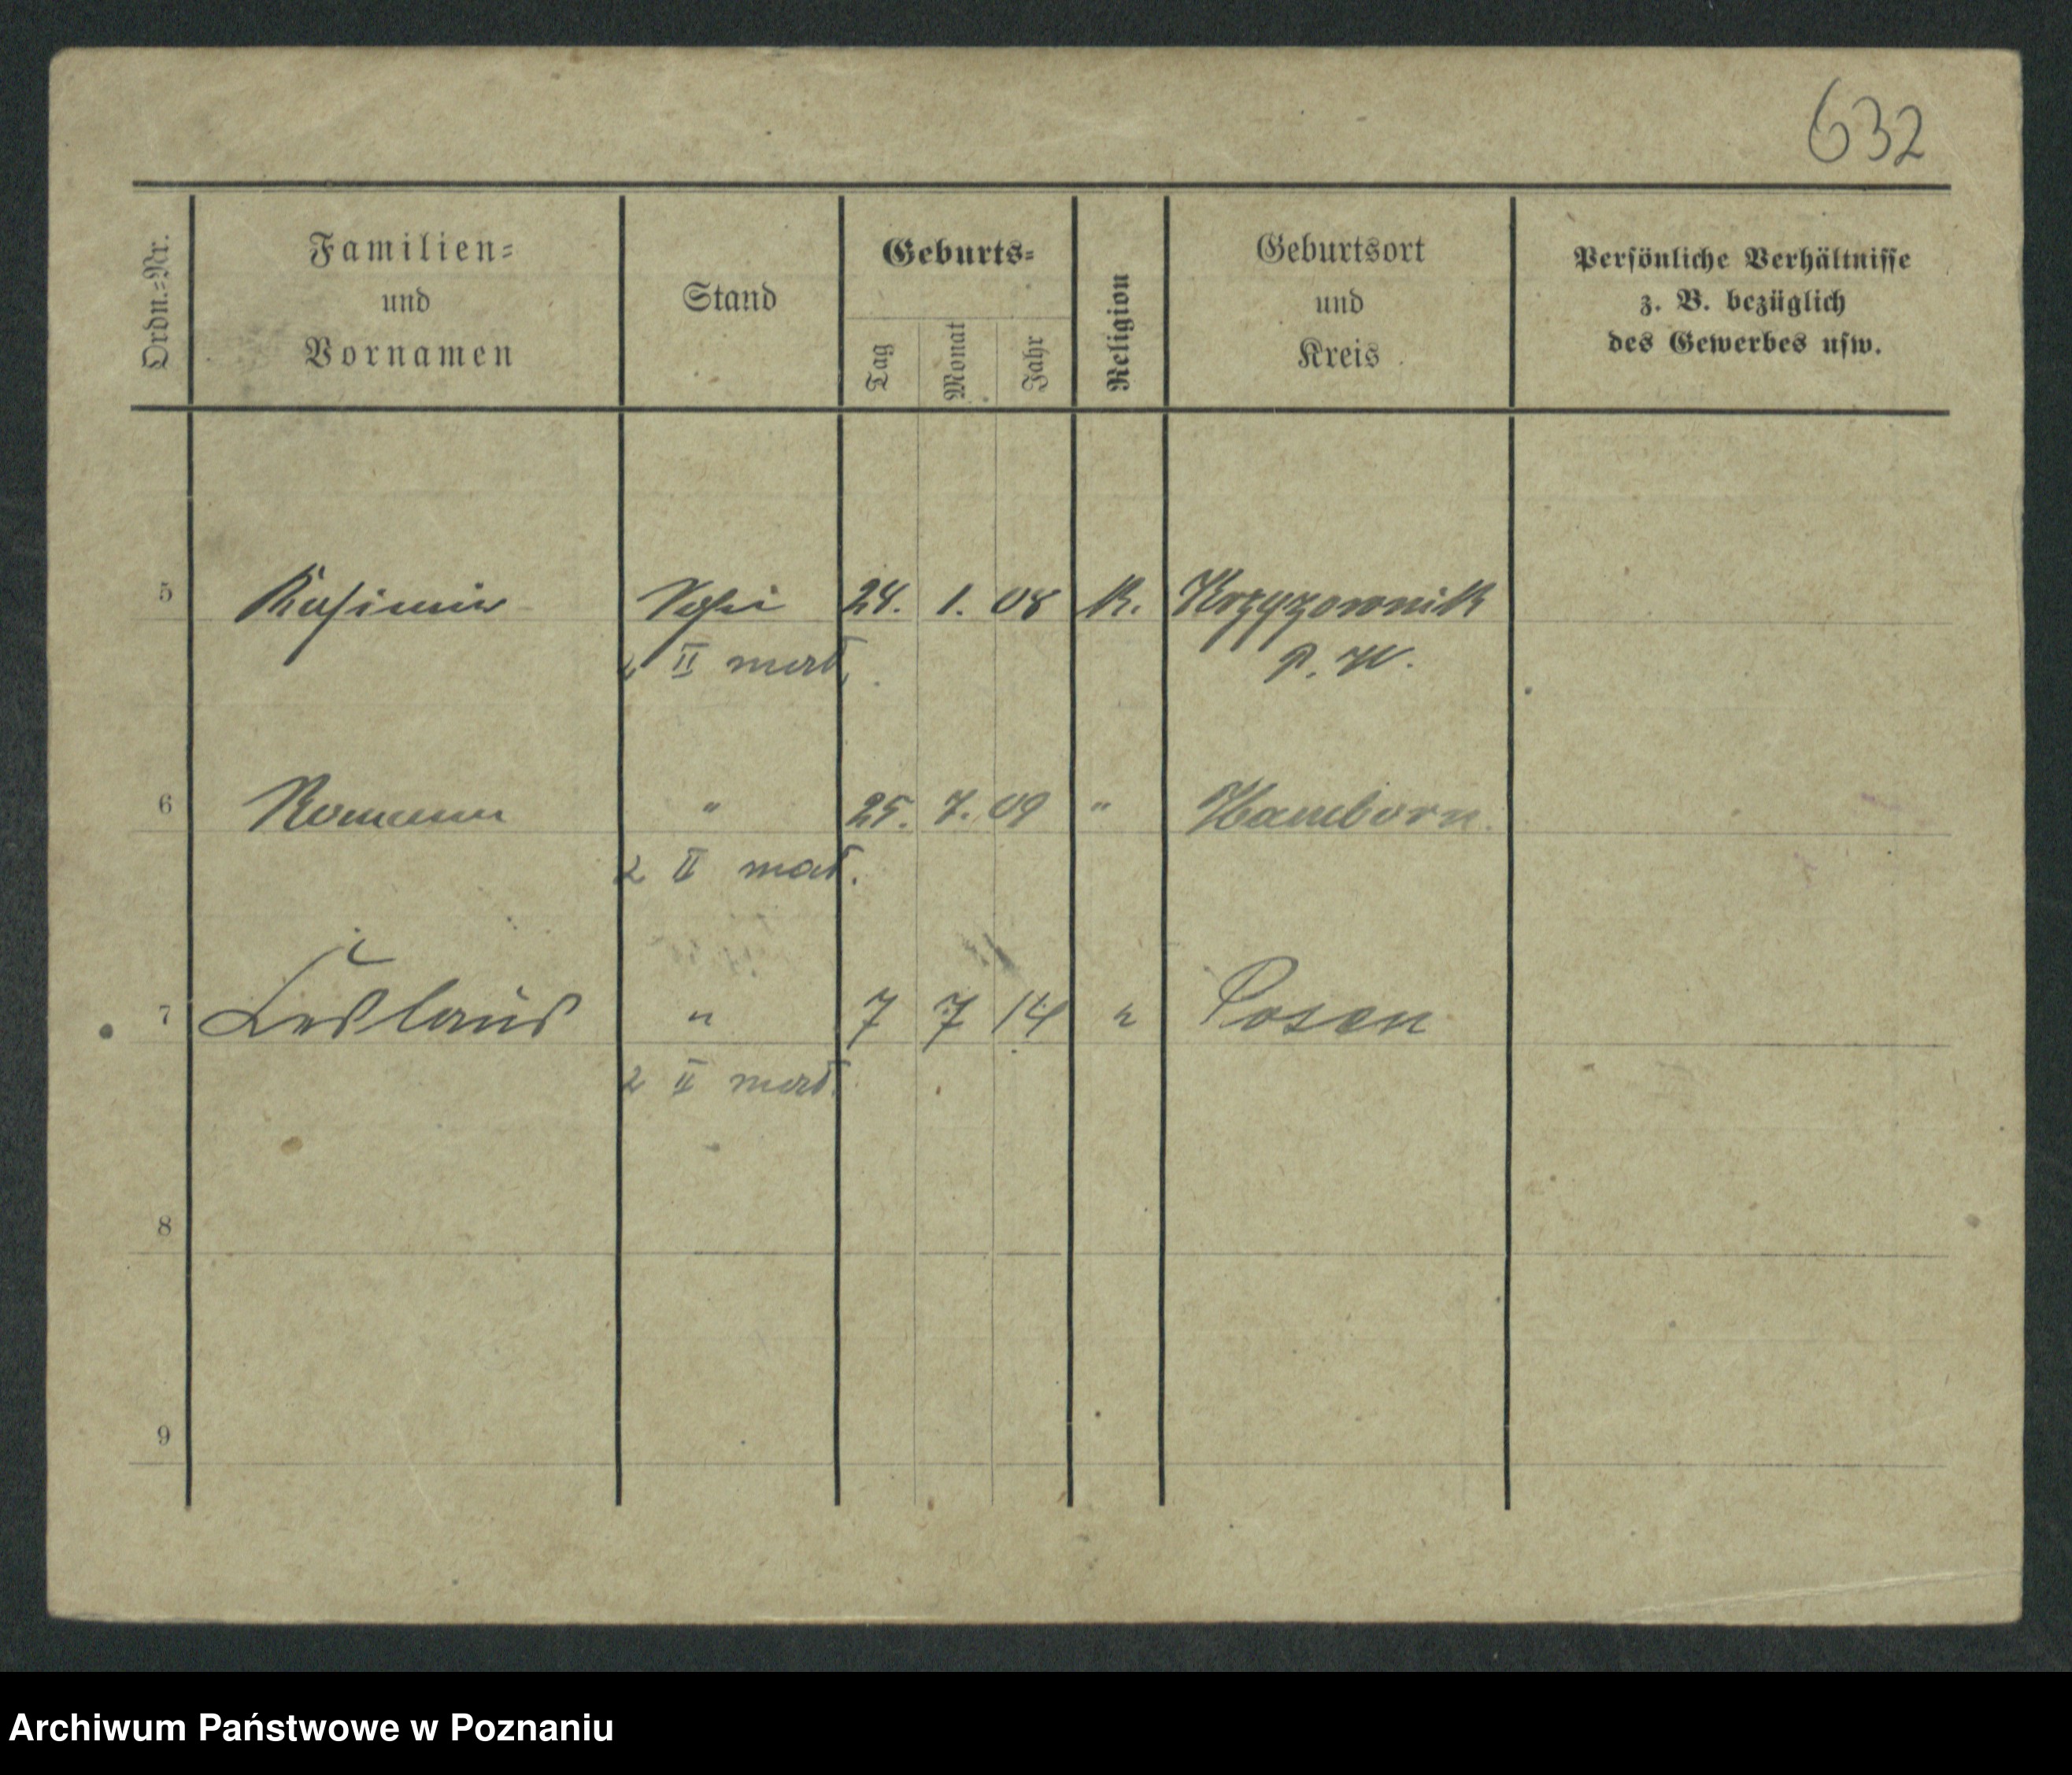 632
Ordn.-Nr.
Familien-
und
Vornamen
Stand
Geburts-
Tag
Monat
Jahr
Religion
Geburtsort
und
Kreis
Persönliche Verhältnisse
z. B. bezüglich
des Gewerbes usw.
5 Kasimir 24. 1. 08 K. Krzyzownik
II P. W.
6 Roman " 25. 7. 09 " Hamborn.
2 II
7 Ladislaus " 7 7 14 " Posen
2 II
8
9
Archiwum Państwowe w Poznaniu